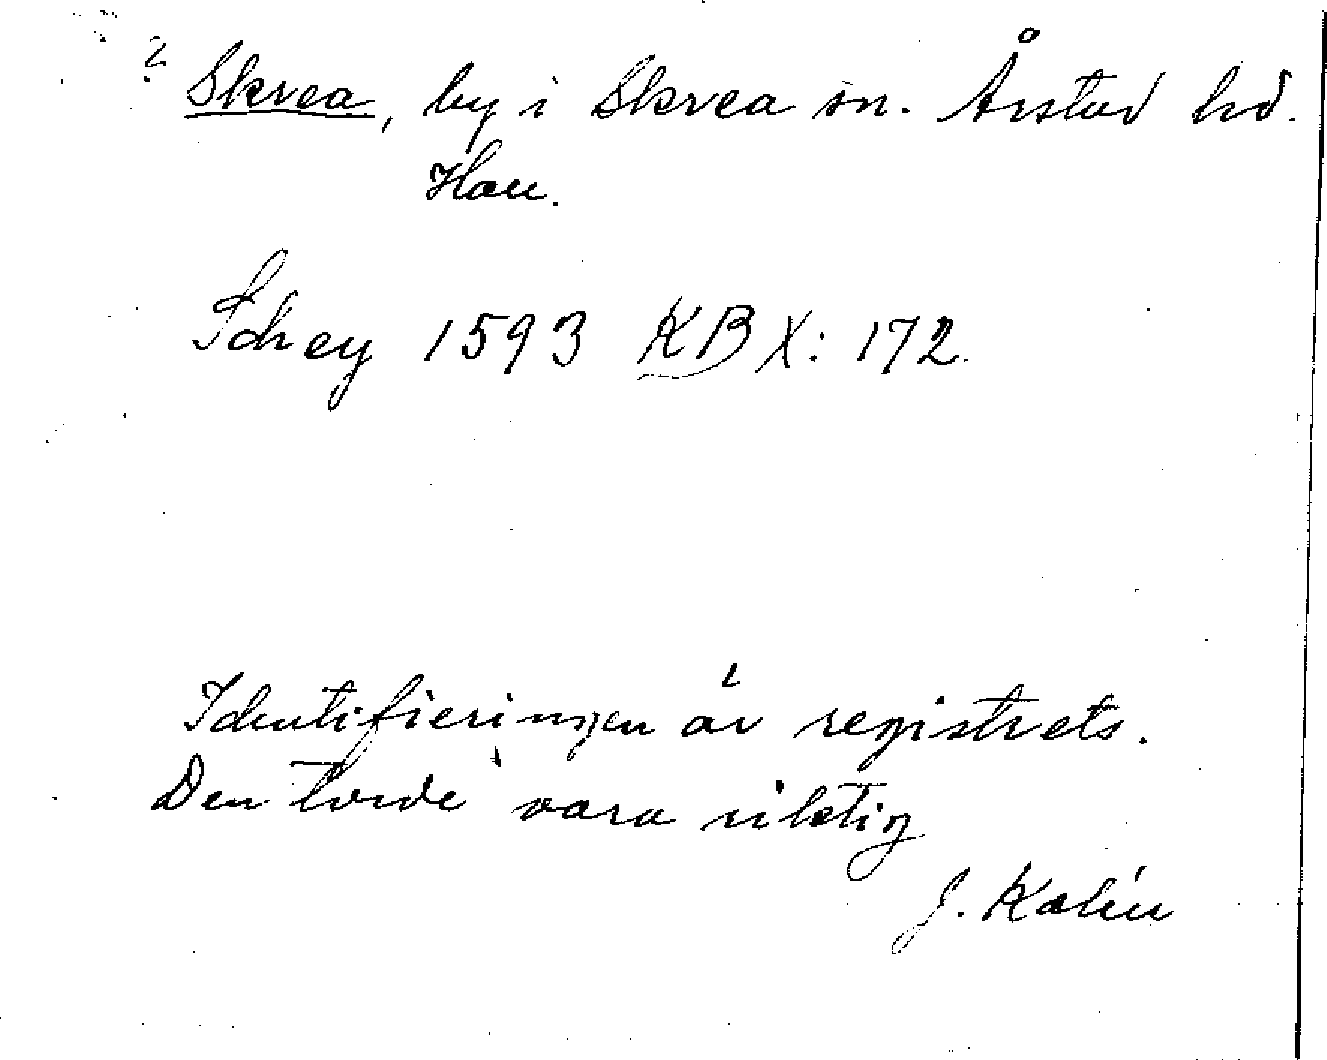 ? Skrea, by i Skrea sn. Årstad hd.
Hall.
Schey 1593 KB X: 172.
Identifieringen är registrets.
Den torde vara riktig
J. Kalén